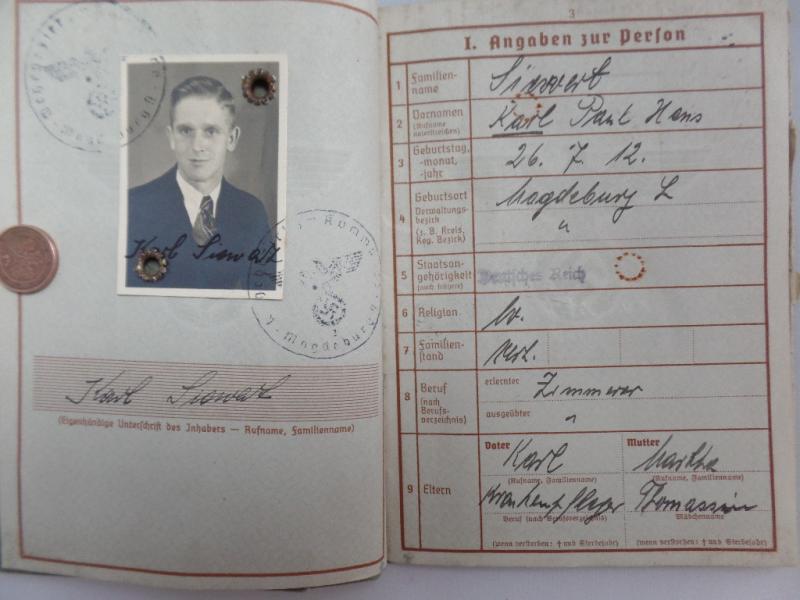 Karl Siewert
Karl Siewert
(Eigenhändige Unterschrift des Inhabers — Rufname, Familienname)
3
I. Angaben zur Person
1 Familien-
name
Siewert
2 Vornamen
(Rufname
unterstreichen)
Karl Paul Hans
3 Geburtstag,
-monat,
-jahr
26. 7. 12.
4 Geburtsort
Verwaltungs-
bezirk
(z. B. Kreis,
Reg. Bezirk)
Magdeburg
"
5 Staatsan-
gehörigkeit
(auch frühere)
Deutsches Reich
6 Religion
ev.
7 Familien-
stand
verh.
8 Beruf
(nach
Berufs-
verzeichnis)
erlernter
Zimmerer
ausgeübter
"
9 Eltern
Vater
Karl
(Rufname, Familienname)
Krankenpfleger
Beruf (nach Berufsverzeichnis)
(wenn verstorben: † und Sterbejahr)
Mutter
Martha
(Rufname, Familienname)
Mädchenname
(wenn verstorben: † und Sterbejahr)